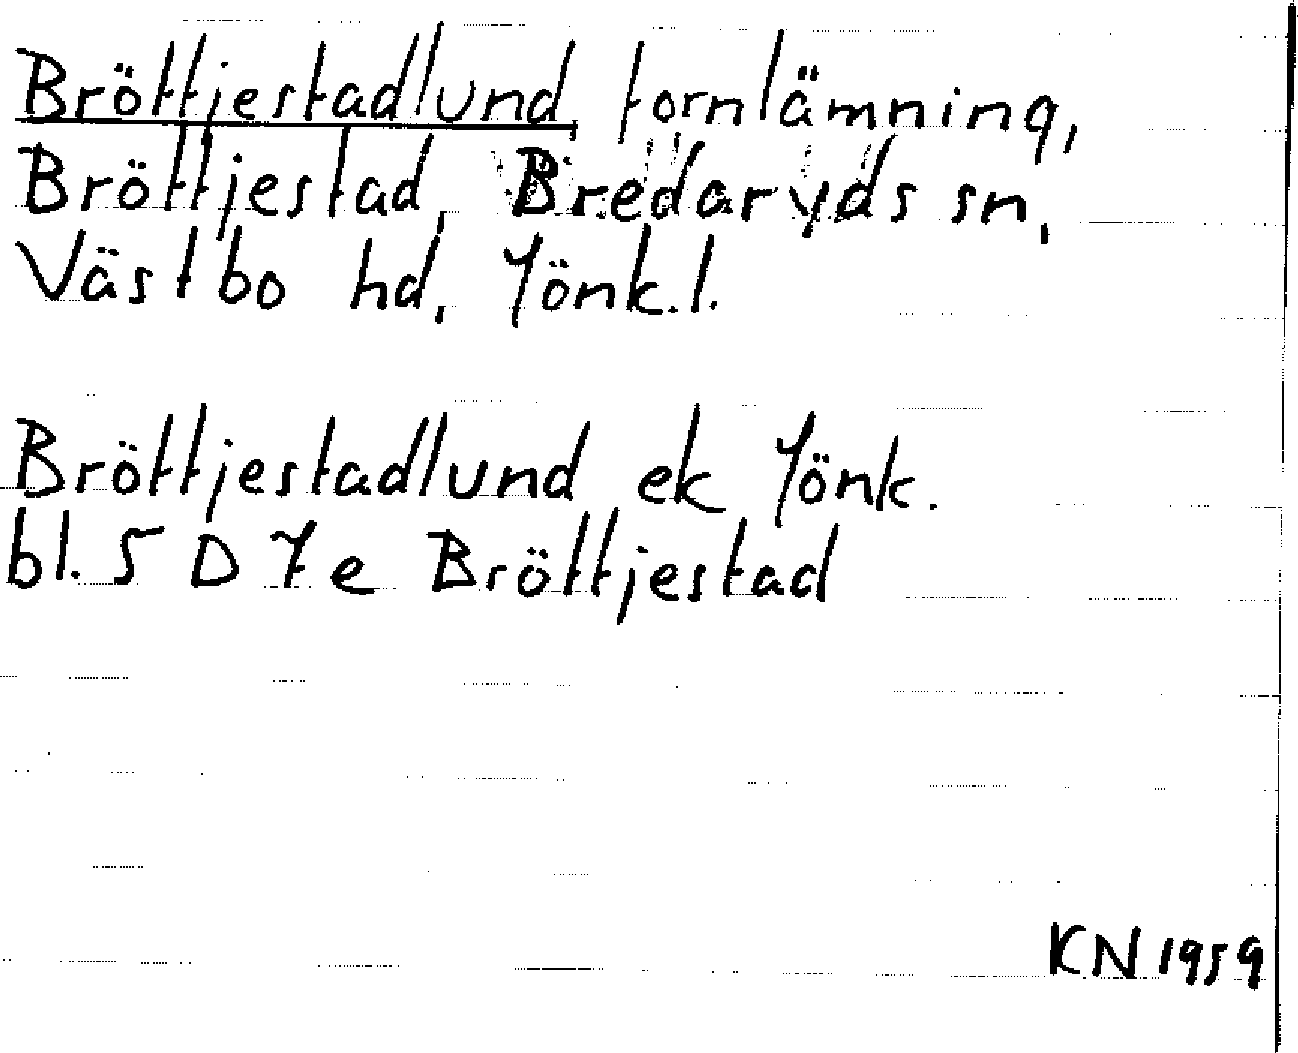 Bröttjestadlund, fornlämning,
Bröttjestad, Bredaryds sn,
Västbo hd, Jönk.l.
Bröttjestadlund ek Jönk.
bl. 5 D 7 e Bröttjestad
KN 1959